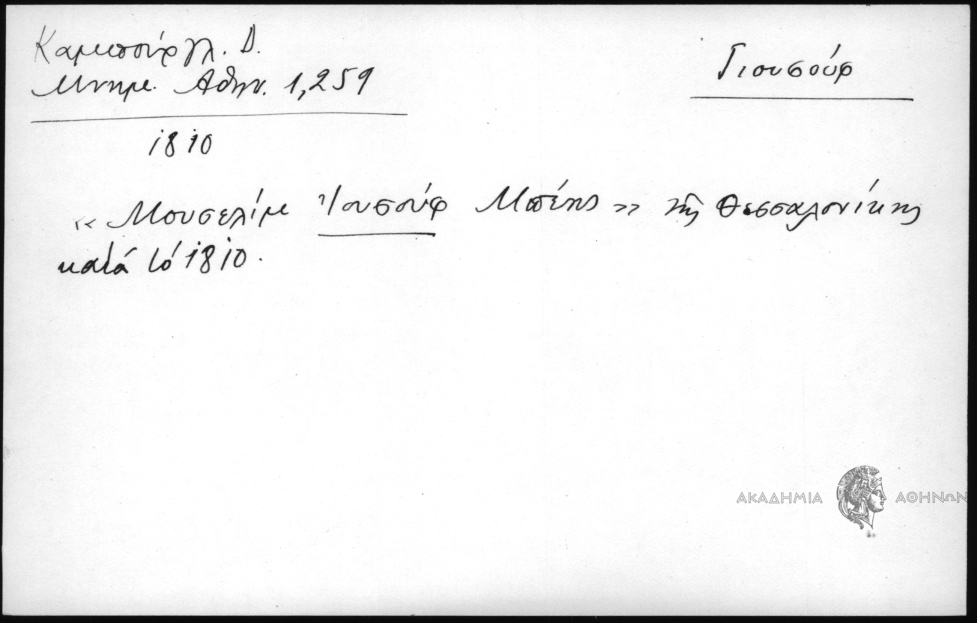 Καμπούργλ. Δ.
Μνημ. Αθην. 1,259
Γιουσούφ
1810
« Μουσελίμ Ἰουσούφ Μπέης » τῆς Θεσσαλονίκης
κατά τό 1810.
ΑΚΑΔΗΜΙΑ ΑΘΗΝΩΝ